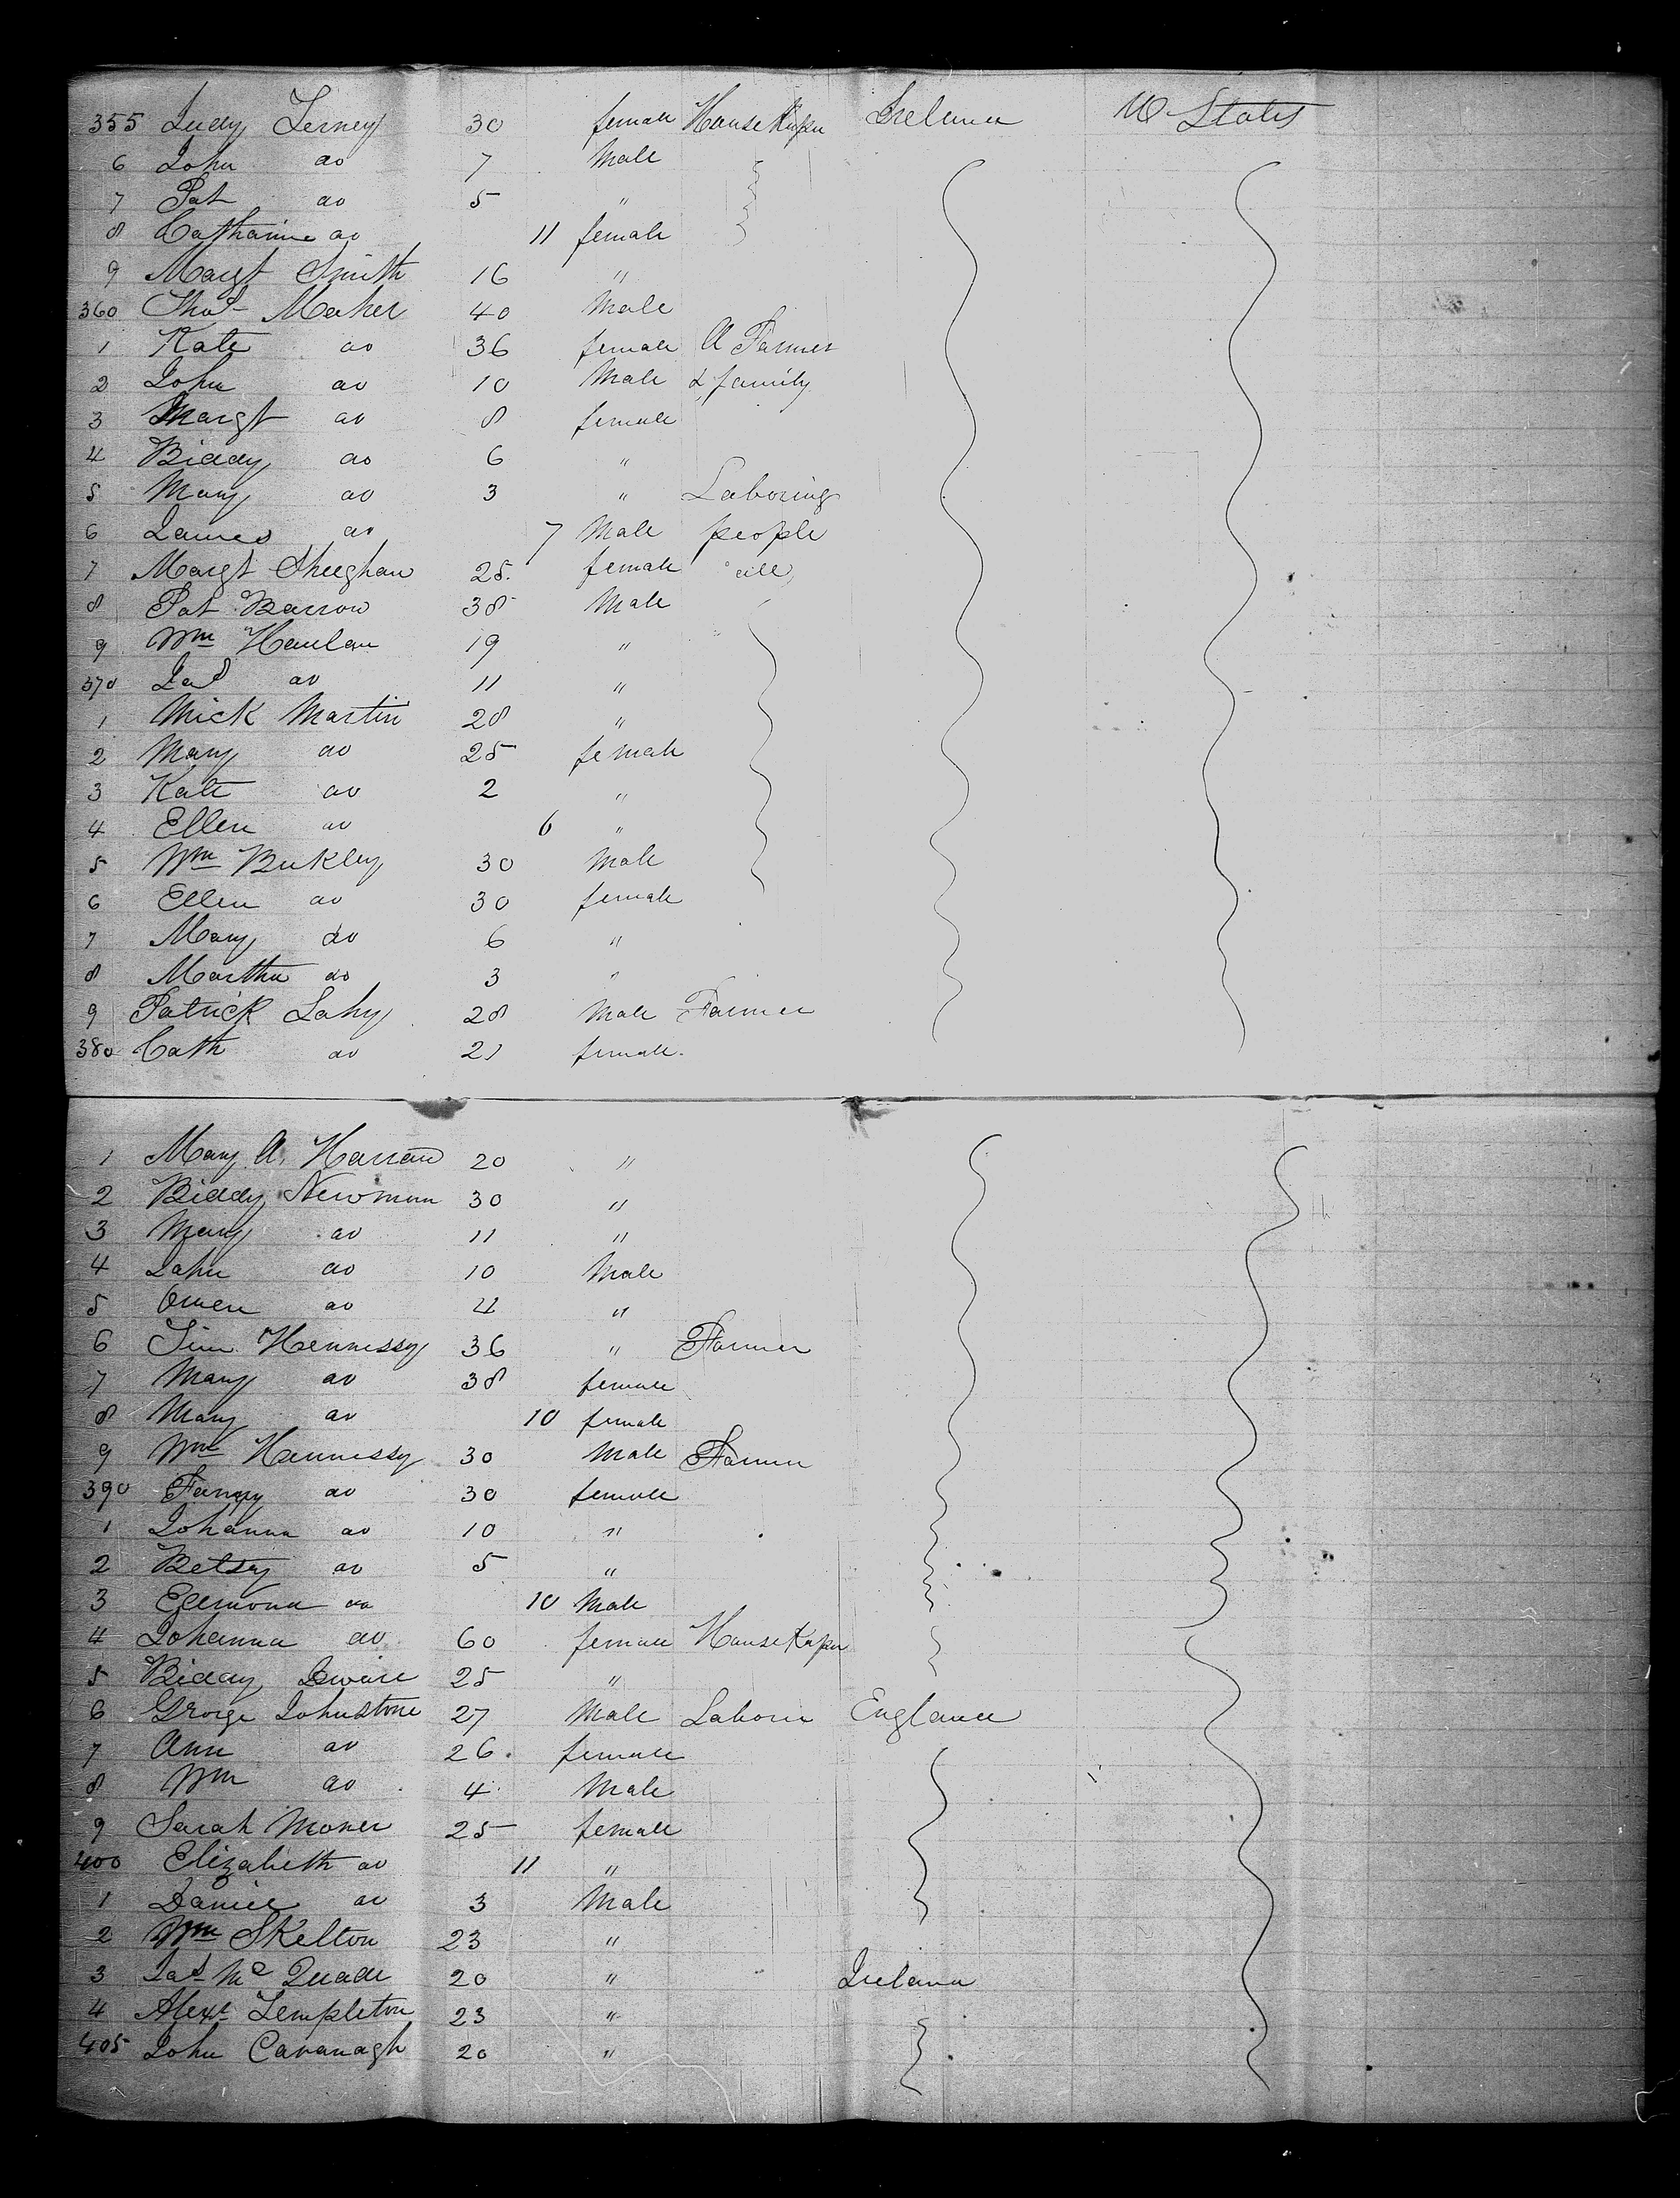 355 Judy Terney 30 female House Keeper Ireland U States
6 John do 7 Male
7 Pat do 5 "
8 Catharine do 11 female
9 Margt Smith 16 "
360 Thos Maher 40 Male
1 Kate do 36 female A Farmer
2 John do 10 Male & family
3 Margt do 8 female
4 Biddy do 6 "
5 Mary do 3 " Laboring
6 James do 7 Male people
7 Margt Sheeghan 25 female all
8 Pat Barron 38 Male
9 Wm Hanlan 19 "
370 Jas do 11 "
1 Mick Martin 28 "
2 Mary do 25 female
3 Kate do 2 "
4 Ellen do 6 "
5 Wm Buckley 30 Male
6 Ellen do 30 female
7 Mary do 6 "
8 Martha do 3 "
9 Patrick Lahy 28 Male Farmer
380 Cath do 21 female
1 Mary A. Harran 20 "
2 Biddy Newman 30 "
3 Mary do 11 "
4 John do 10 Male
5 Owen do 4 "
6 Tim Hennessy 36 " Farmer
7 Mary do 38 female
8 Mary do 10 female
9 Wm Hennessy 30 Male Farmer
390 Fanny do 30 female
1 Johanna do 10 "
2 Betsy do 5 "
3 Edmond do 10 Male
4 Johanna do 60 female House Keeper
5 Biddy Dwire 25 "
6 George Johnstone 27 Male Laborer England
7 Ann do 26 female
8 Wm do 4 Male
9 Sarah Moner 25 female
400 Elizabeth do 11 "
1 Daniel do 3 Male
2 Wm Skelton 23 "
3 Jas McQuade 20 " Ireland
4 Alexr Templeton 23 "
405 John Cavanagh 20 "